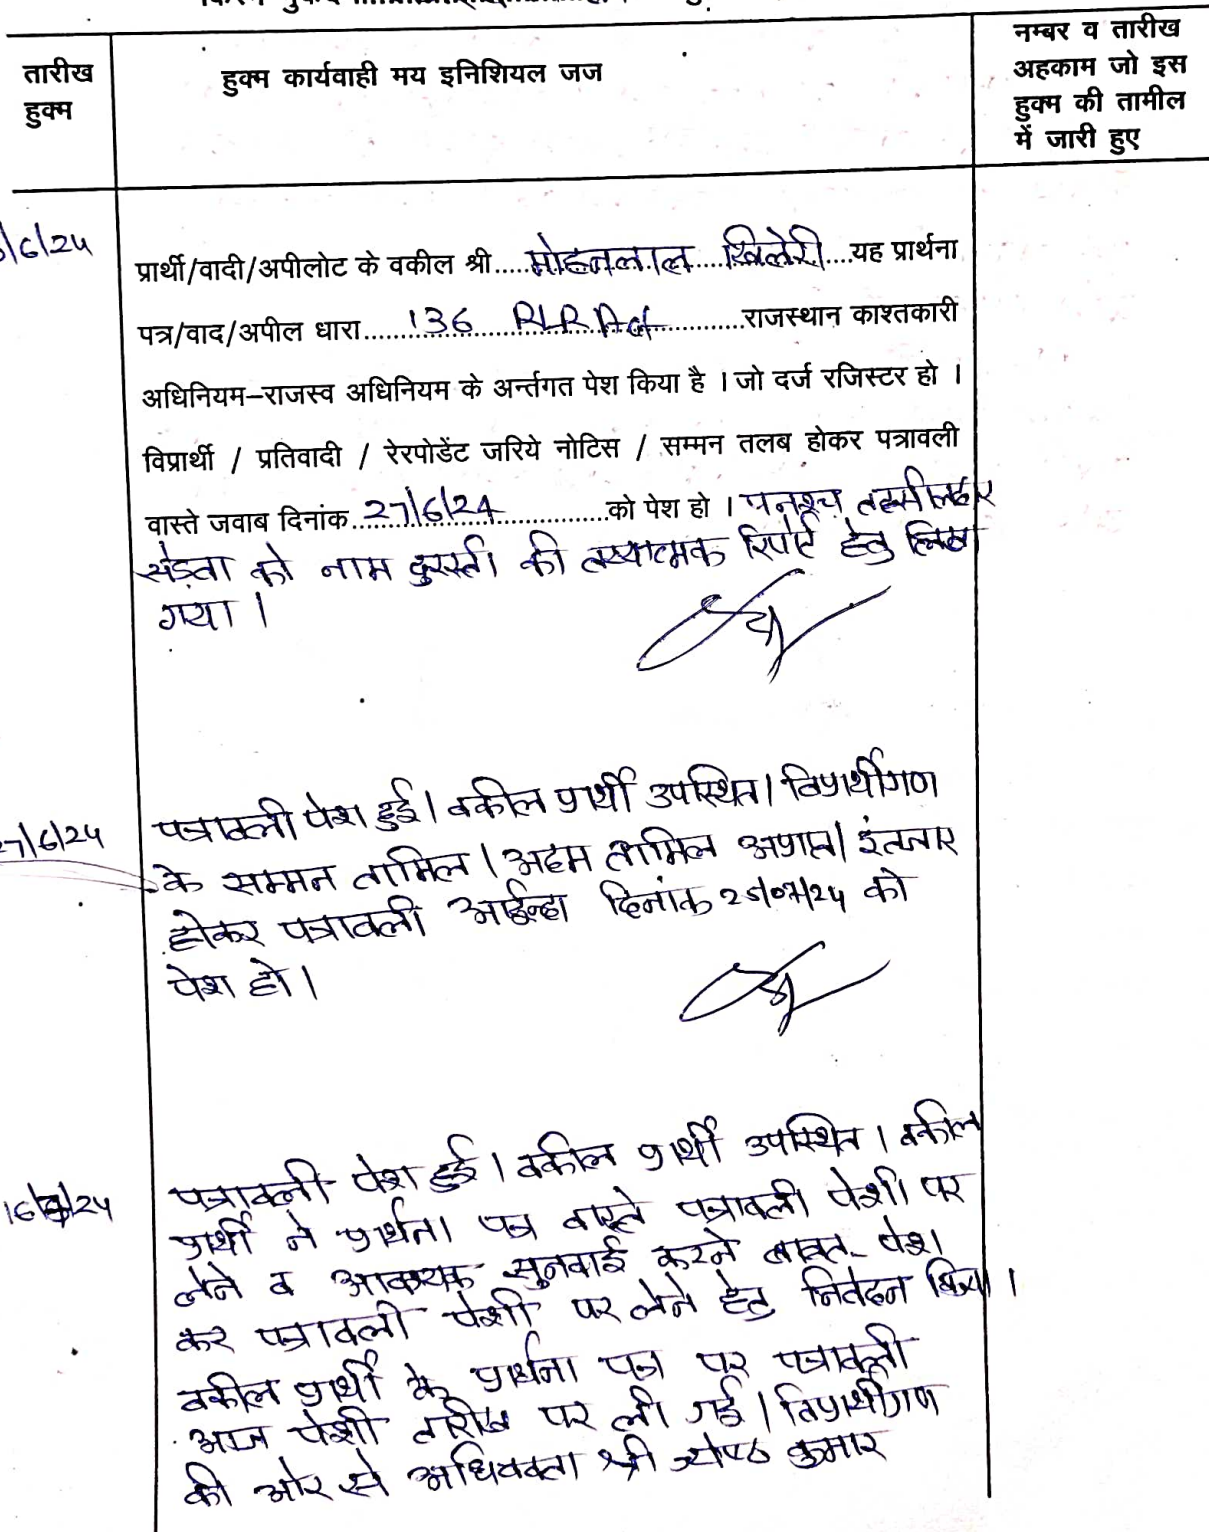 तारीख
हुक्म
हुक्म कार्यवाही मय इनिशियल जज
नम्बर व तारीख
अहकाम जो इस
हुक्म की तामील
में जारी हुए
/6/24
प्रार्थी/वादी/अपीलोट के वकील श्री.....मोहनलाल खिलेरी....यह प्रार्थना
पत्र/वाद/अपील धारा.....136 RLR Act.....राजस्थान काश्तकारी
अधिनियम–राजस्व अधिनियम के अर्न्तगत पेश किया है । जो दर्ज रजिस्टर हो ।
विप्रार्थी / प्रतिवादी / रेरपोडेंट जरिये नोटिस / सम्मन तलब होकर पत्रावली
वास्ते जवाब दिनांक...27/6/24.....को पेश हो । तहसीलदार
सेड़वा को नाम दुरस्ती की तथ्यात्मक रिपोर्ट हेतु लिखा
गया ।
27/6/24
पत्रावली पेश हुई । वकील प्रार्थी उपस्थित । विप्रार्थीगण
के सम्मन तामिल । अदम तामिल अप्राप्त । इंतजार
होकर पत्रावली आईन्दा दिनांक 25/07/24 को
पेश हो ।
16/7/24
पत्रावली पेश हुई । वकील प्रार्थी उपस्थित । वकील
प्रार्थी ने प्रार्थना पत्र वास्ते पत्रावली पेशी पर
लेने व आवश्यक सुनवाई करने बाबत पेश
कर पत्रावली पेशी पर लेने हेतु निवेदन किया ।
वकील प्रार्थी के प्रार्थना पत्र पर पत्रावली
आज पेशी तारीख पर ली गई । विप्रार्थीगण
की ओर से अधिवक्ता श्री कुमार